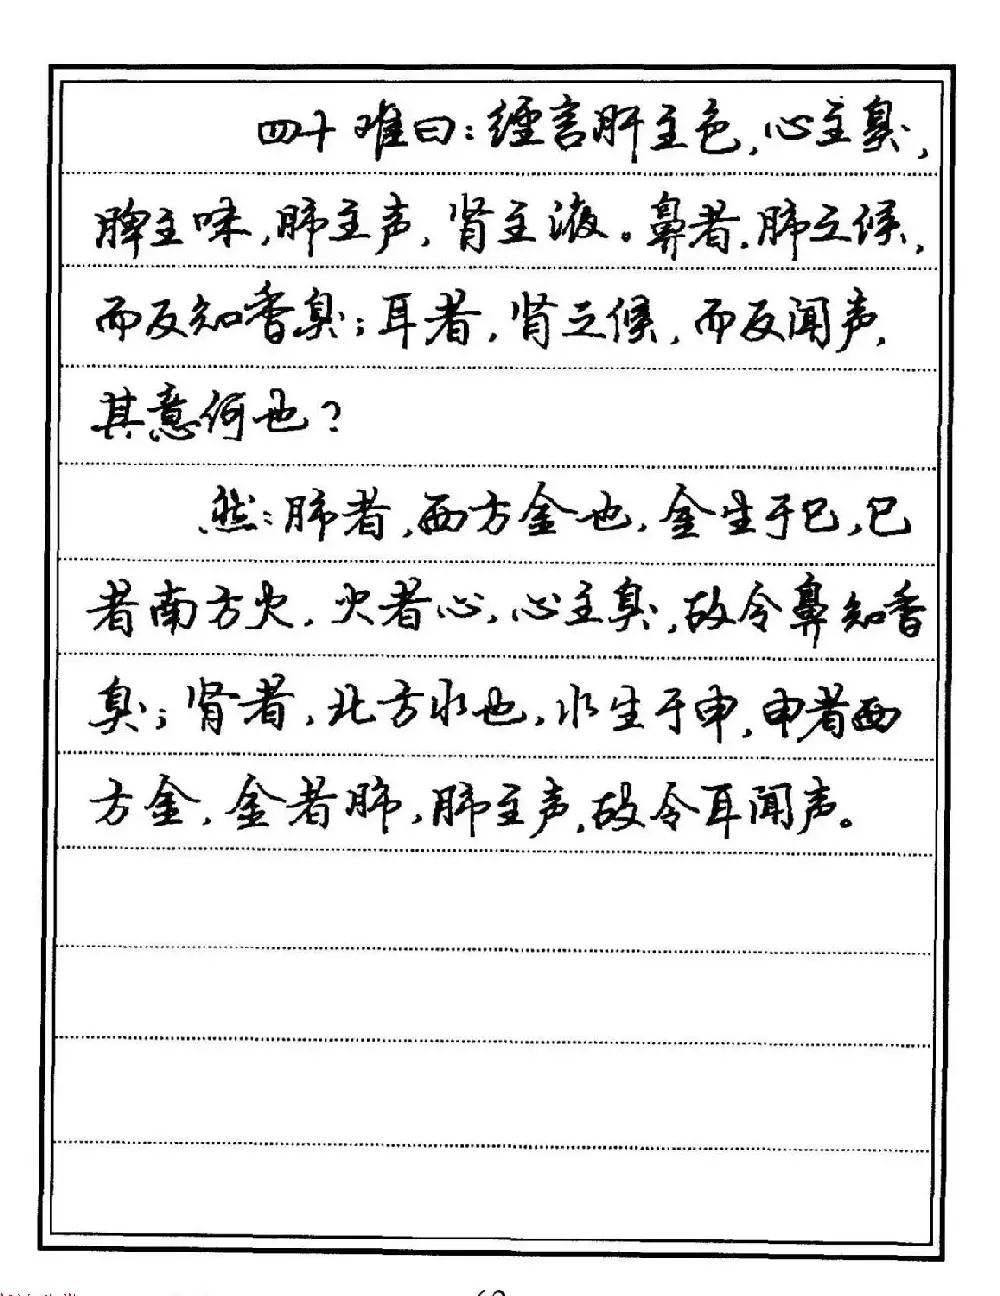 四十难曰：经言肝主色，心主臭，
脾主味，肺主声，肾主液。鼻者，肺之候，
而反知香臭；耳者，肾之候，而反闻声，
其意何也？
然：肺者，西方金也，金生于巳，巳
者南方火，火者心，心主臭，故令鼻知香
臭；肾者，北方水也，水生于申，申者西
方金，金者肺，肺主声，故令耳闻声。